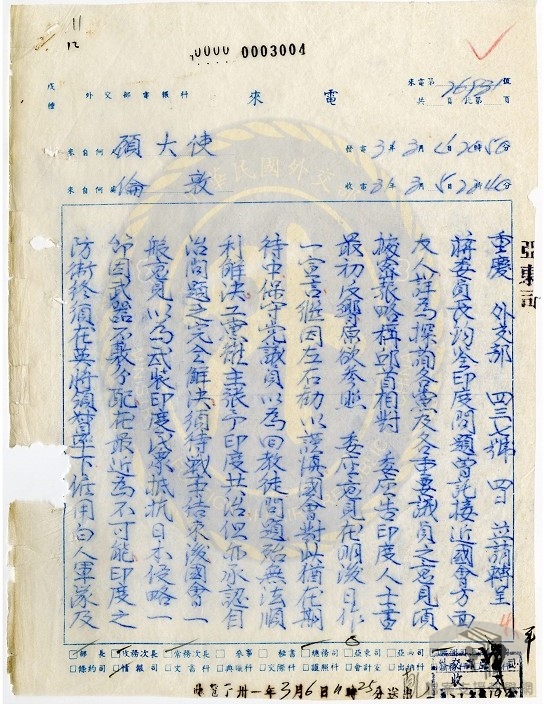 0000 0003004
11
12
戊種
外交部電報科
來電
來電第26931號
共 頁 此第 頁
來自何人 顧大使
來自何處 倫敦
發電 31年3月4日20時50分
收電 31年3月5日22時40分
亞東司
重慶 外交部 四三七號 四日 並請轉呈
蔣委員長鈞鑒印度問題曾託接近國會方面
友人詳為探詢各黨及各重要議員之意見頃
據密報略稱邱首相對 委座告印度人士書
最初反響原欲參照 委座意見在明後日作
一宣言祇因左右勸以謹慎國會對此猶在期
待中保守黨議員以為回教徒問題殆無法順
利解決工黨雖主張予印度共治但亦承認自
治問題之完全解決須待戰事結束後國會一
般意見以為武裝印度富衆抵抗日本侵略一
節因武器不敷分配在最近為不可能印度之
防衛終須在英將領督率下僱用白人軍家及
部長 政務次長 常務次長 參事 秘書 總務司 亞東司 亞西司
條約司 情報司 文書科 典職科 交際科 護照科 會計室 出納科
收文
卅一年3月6日11時25分送出